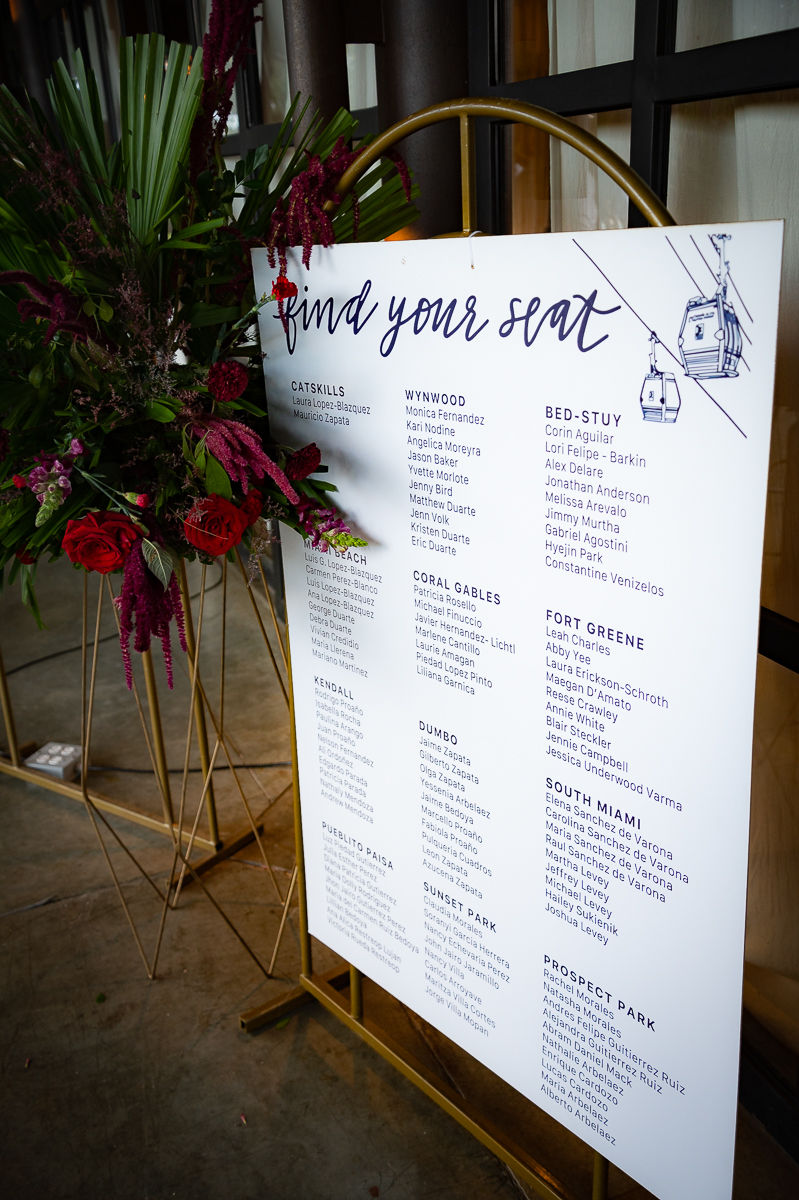 find your seat
CATSKILLS
Laura Lopez-Blazquez
Mauricio Zapata
MIAMI BEACH
Luis G. Lopez-Blazquez
Carmen Perez-Blanco
Luis Lopez-Blazquez
Ana Lopez-Blazquez
George Duarte
Debra Duarte
Vivian Credidio
Maria Llerena
Mariano Martinez
KENDALL
Rodrigo Proaño
Isabella Rocha
Paulina Arango
Juan Proaño
Nelson Fernandez
Ali Ordoñez
Edgardo Parada
Patricia Parada
Nathaly Mendoza
Andrew Mendoza
PUEBLITO PAISA
Luz Piedad Gutierrez
Julia Esther Perez
Diana Patricia Gutierrez
Maria Dolly Rodriguez
Jhon Jairo Gutierrez Perez
Maria del Carmen Ruiz Perez
Lilian Bedoya
Ana Alicia Restrepo Lujan
Victoria Rueda Restrepo
WYNWOOD
Monica Fernandez
Kari Nodine
Angelica Moreyra
Jason Baker
Yvette Morlote
Jenny Bird
Matthew Duarte
Jenn Volk
Kristen Duarte
Eric Duarte
CORAL GABLES
Patricia Rosello
Michael Finuccio
Javier Hernandez- Lichtl
Marlene Cantillo
Laurie Amagan
Piedad Lopez Pinto
Liliana Garnica
DUMBO
Jaime Zapata
Gilberto Zapata
Olga Zapata
Yessenia Arbelaez
Jaime Bedoya
Marcello Proaño
Fabiola Proaño
Pulqueria Cuadros
Leon Zapata
Azucena Zapata
SUNSET PARK
Claudia Morales
Soranyi Garcia Herrera
Nancy Echevarria Perez
John Jairo Jaramillo
Nancy Villa
Carlos Arroyave
Maritza Villa Cortes
Jorge Villa Mopan
BED-STUY
Corin Aguilar
Lori Felipe - Barkin
Alex Delare
Jonathan Anderson
Melissa Arevalo
Jimmy Murtha
Gabriel Agostini
Hyejin Park
Constantine Venizelos
FORT GREENE
Leah Charles
Abby Yee
Laura Erickson-Schroth
Maegan D'Amato
Reese Crawley
Annie White
Blair Steckler
Jennie Campbell
Jessica Underwood Varma
SOUTH MIAMI
Elena Sanchez de Varona
Carolina Sanchez de Varona
Maria Sanchez de Varona
Raul Sanchez de Varona
Martha Levey
Jeffrey Levey
Michael Levey
Hailey Sukienik
Joshua Levey
PROSPECT PARK
Rachel Morales
Natasha Morales
Andres Felipe Guitierrez Ruiz
Alejandra Guitierrez Ruiz
Abram Daniel Mack
Nathalie Arbelaez
Enrique Cardozo
Lucas Cardozo
Maria Arbelaez
Alberto Arbelaez